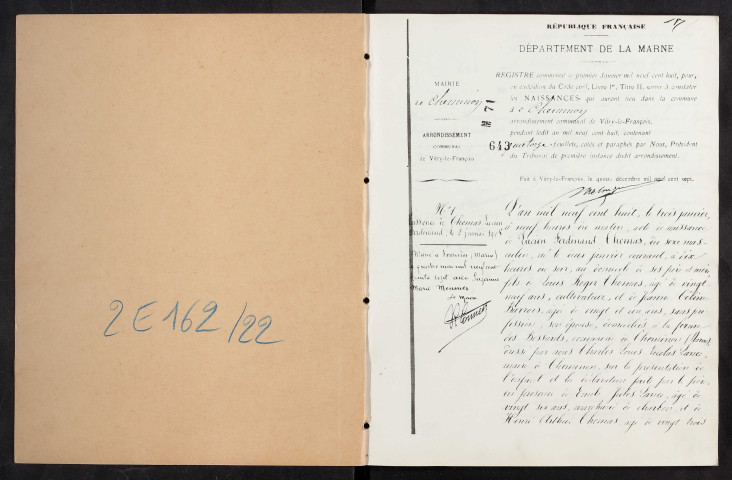 2 E 162/22
RÉPUBLIQUE FRANÇAISE
DÉPARTEMENT DE LA MARNE
MAIRIE
de Cheminon
ARRONDISSEMENT
COMMUNAL
de Vitry-le-François
N° 71
643
REGISTRE commencé le premier Janvier mil neuf cent huit, pour,
en exécution du Code civil, Livre Ier, Titre II, servir à constater
les NAISSANCES qui auront lieu dans la commune
d e Cheminon
arrondissement communal de Vitry-le-François,
pendant ledit an mil neuf cent huit, contenant
feuillets, cotés et paraphés par Nous, Président
du Tribunal de première instance dudit arrondissement.
Fait à Vitry-le-François, le quinze décembre mil neuf cent sept.
N° 1
Naissance de Thomas Lucien
Ferdinand, le 2 janvier 1908
Marié à (Marne)
le quatre mai mil neuf cent
trente sept avec Suzanne
Marie
Le Maire
L'an mil neuf cent huit, le trois janvier,
à neuf heures du matin, acte de naissance
de Lucien Ferdinand Thomas, du sexe mas-
culin, né le deux janvier courant, à dix
heures du soir, au domicile de ses père et mère,
fils de Louis Roger Thomas, âgé de vingt
neuf ans, cultivateur, et de Jeanne
âgée de vingt et un ans, sans pro-
fession, son épouse, domiciliés à la ferme
des Bossards, commune de Cheminon (Marne)
Dressé par nous Charles Louis Nicolas
maire de Cheminon, sur la présentation de
l'enfant et la déclaration faite par le père,
en présence de Emile Jules âgé de
vingt six ans, marchand de charbon, et de
Henri Arthur Thomas, âgé de vingt trois